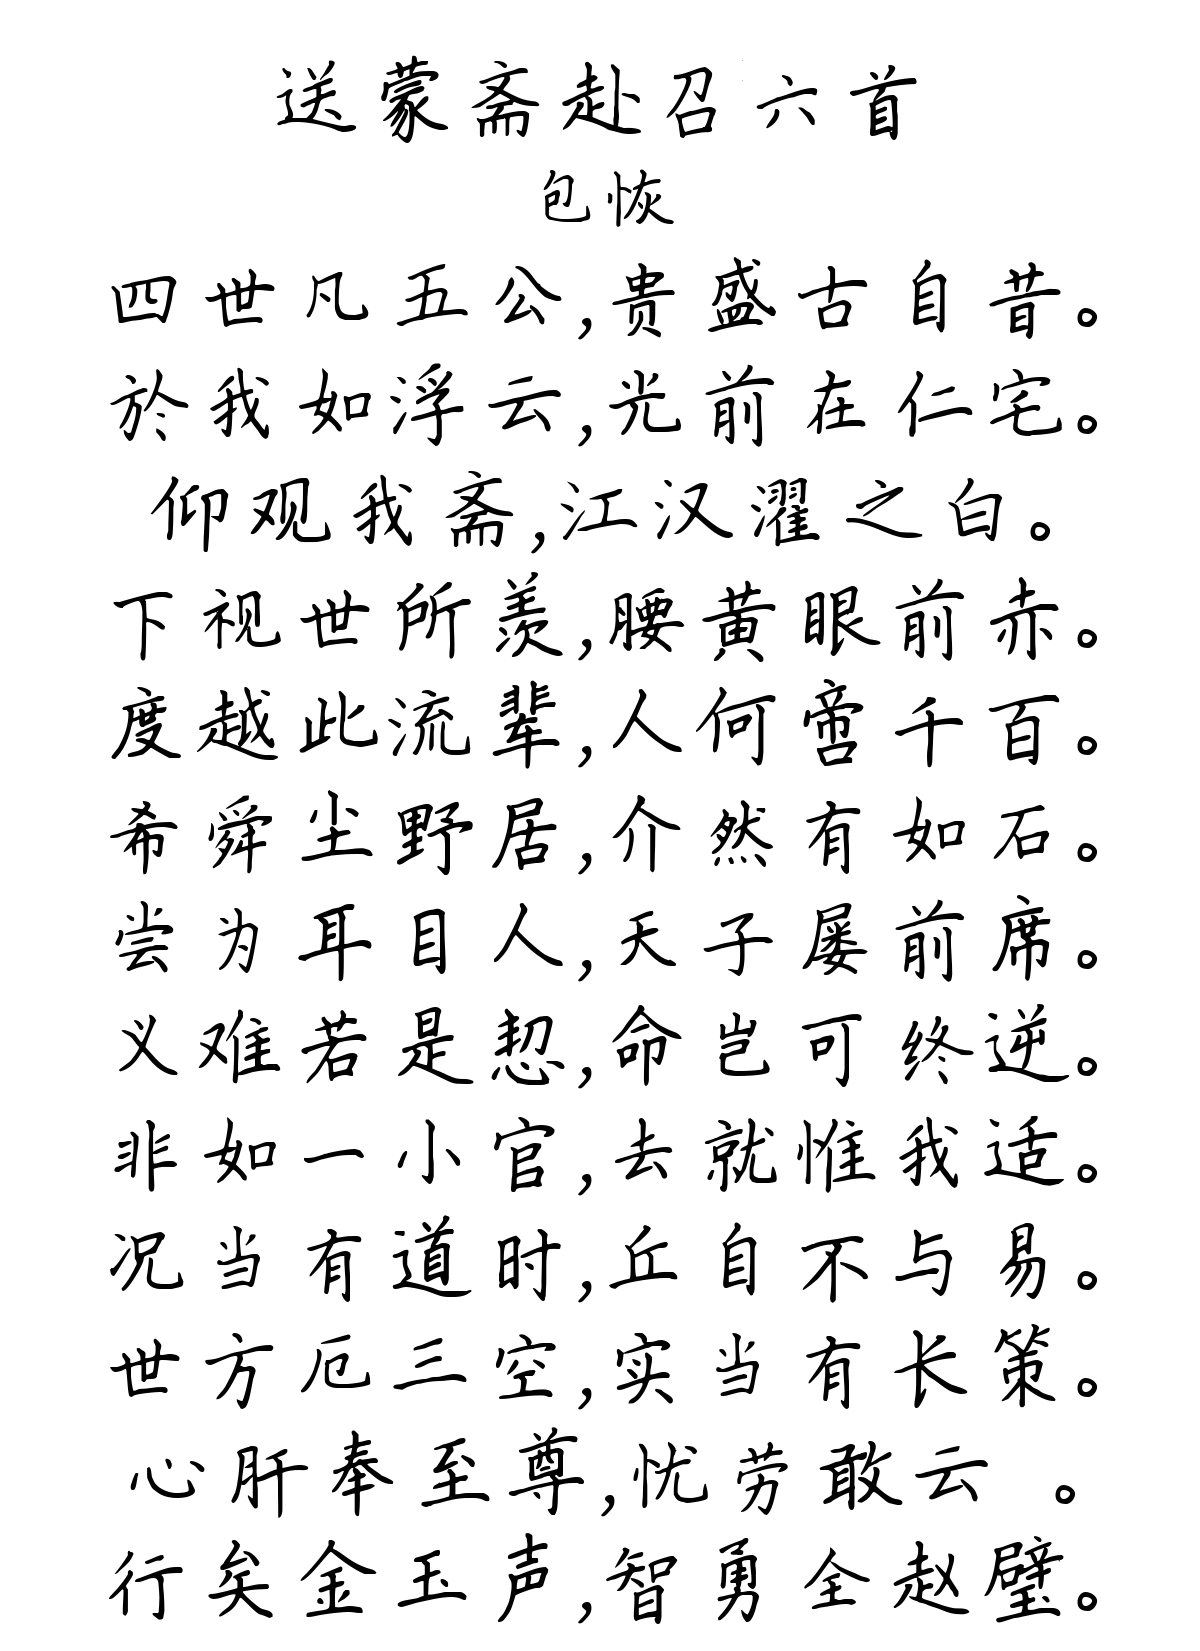 送蒙斋赴召六首
包恢
四世凡五公,贵盛古自昔。
於我如浮云,光前在仁宅。
仰观我斋,江汉濯之白。
下视世所羡,腰黄眼前赤。
度越此流辈,人何啻千百。
希舜尘野居,介然有如石。
尝为耳目人,天子屡前席。
义难若是恝,命岂可终逆。
非如一小官,去就惟我适。
况当有道时,丘自不与易。
世方厄三空,实当有长策。
心肝奉至尊,忧劳敢云 。
行矣金玉声,智勇全赵璧。